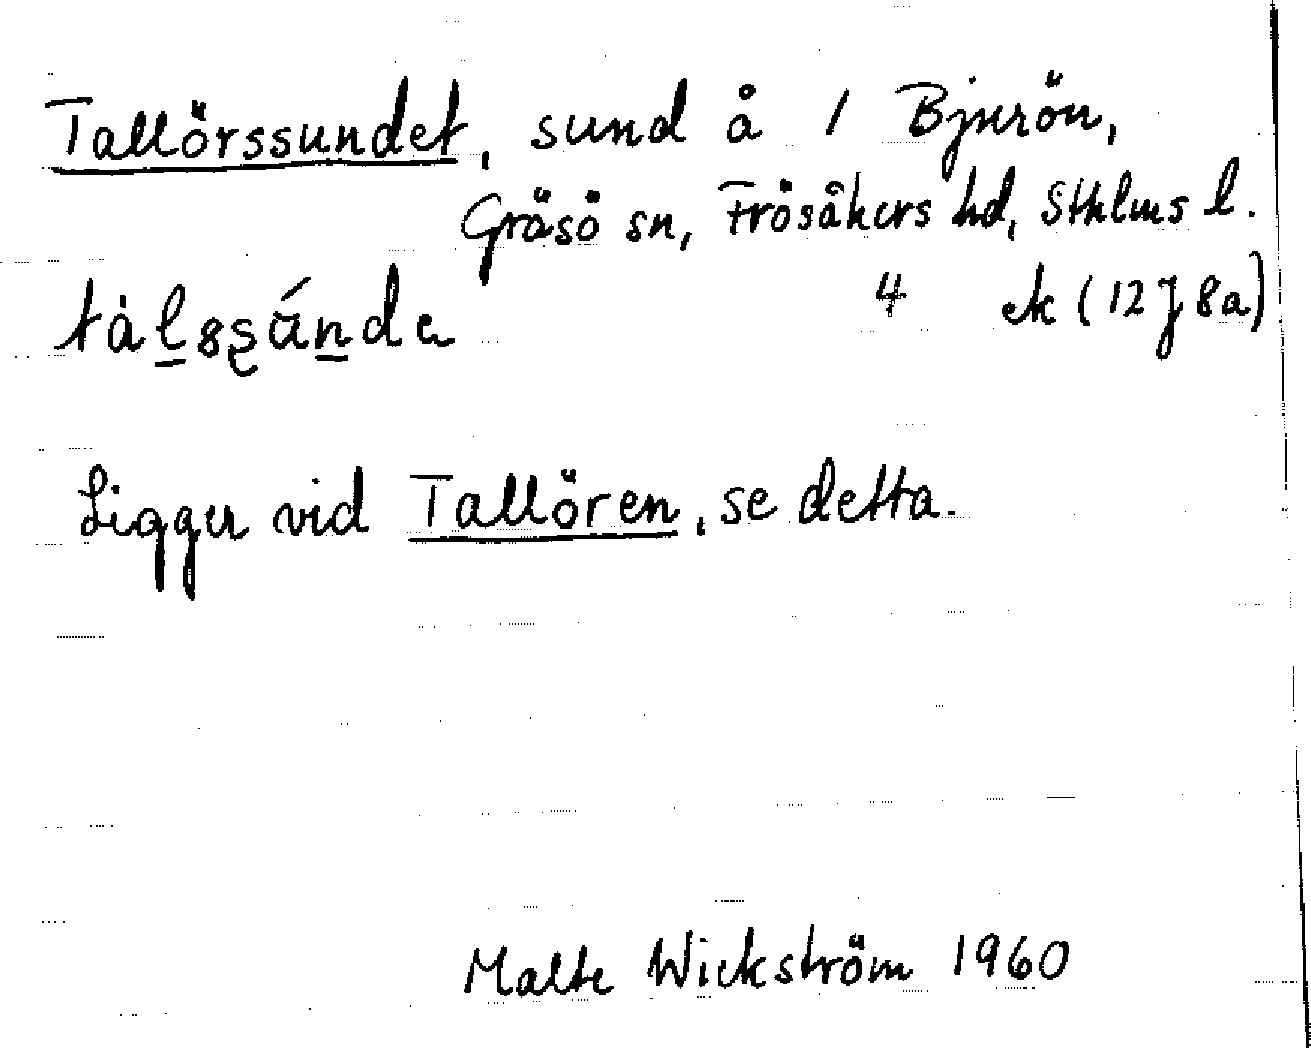 Tallörssundet, sund å 1 Bjurön,
Gräsö sn, Frösåkers hd, Sthlms l.
4 ek (12 J 8a)
Ligger vid Tallören, se detta.
Malte Wickström 1960